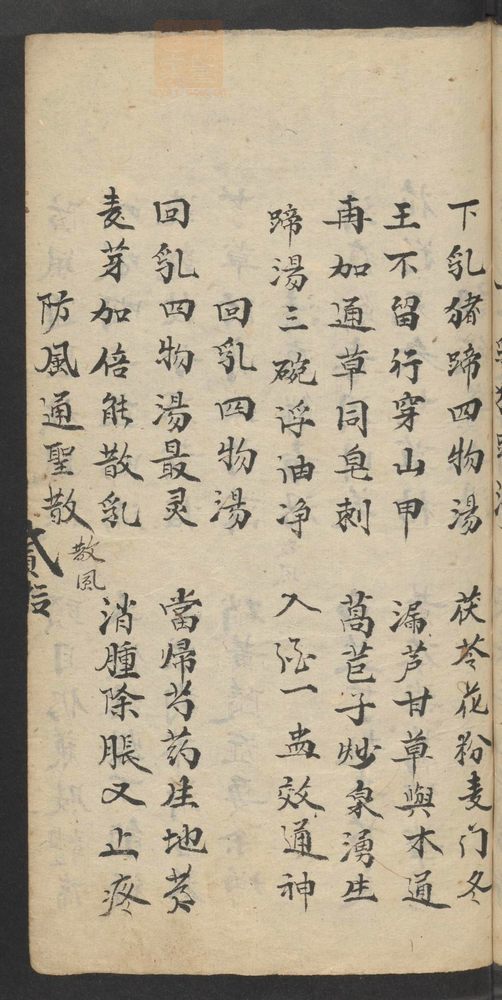 下乳猪蹄四物湯　茯苓花粉麦门冬
王不留行穿山甲　漏芦甘草與木通
再加通草同皂刺　萵苣子炒泉湧生
蹄湯三碗浮油净　入酒一盅效通神
回乳四物湯
回乳四物湯最灵　當帰芍药生地芎
麦芽加倍能散乳　消腫除脹又止疼
防風通聖散
散風
貳拾